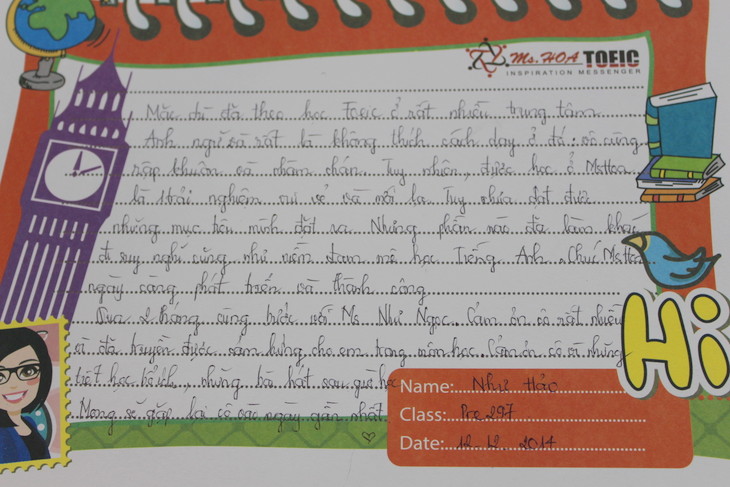 Ms. HOA TOEIC
INSPIRATION MESSENGER
Mặc dù đã theo học Toeic ở rất nhiều trung tâm
Anh ngữ và rất là không thích cách dạy ở đó: vô cùng
rập khuôn và nhàm chán. Tuy nhiên, được học ở MsHoa
là trải nghiệm vui vẻ và mới lạ. Tuy chưa đạt được
những mục tiêu mình đặt ra. Nhưng phần nào đã làm khác
đi suy nghĩ cũng như niềm đam mê học Tiếng Anh. Chúc MsHoa
ngày càng phát triển và thành công
Qua 2 tháng cùng bước với Ms Như Ngọc. Cảm ơn cô rất nhiều
vì đã truyền được cảm hứng cho em trong môn học. Cảm ơn cô vì những
tiết học bổ ích, những bài hát sau giờ học
Mong sẽ gặp lại cô vào ngày gần nhất
♡
Hi
Name: Như Hảo
Class: Pre 297
Date: 12.12.2014